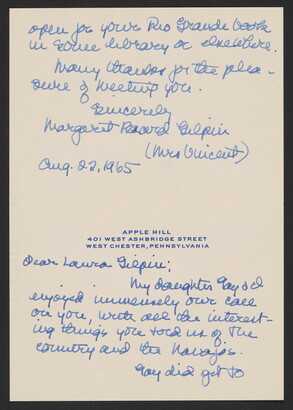 open for your Rio Grande book
in some library or elsewhere.
Many thanks for the plea-
sure of meeting you.
Sincerely
Margaret Gilpin
(Mrs Vincent)
Aug. 22, 1965
APPLE HILL
401 WEST ASHBRIDGE STREET
WEST CHESTER, PENNSYLVANIA
Dear Laura Gilpin;
My daughter Gay & I
enjoyed immensely our call
on you, with all the interest-
ing things you told us of the
country and the Navajos.
Gay did get to